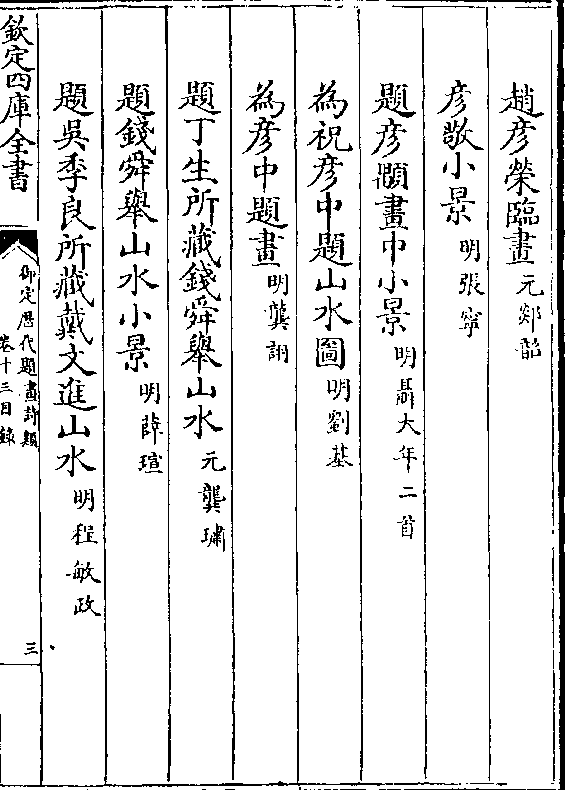 趙彦榮臨畫 元郯韶
彦敬小景 明張寧
題彦顒畫中小景 明聶大年二首
為祝彦中題山水圖 明劉基
為彦中題畫 明龔詡
題丁生所藏錢舜舉山水 元龔璛
題錢舜舉山水小景 明薛瑄
題吳季良所藏戴文進山水 明程敏政
欽定四庫全書
御定歴代題畫詩類
卷十三目錄
三